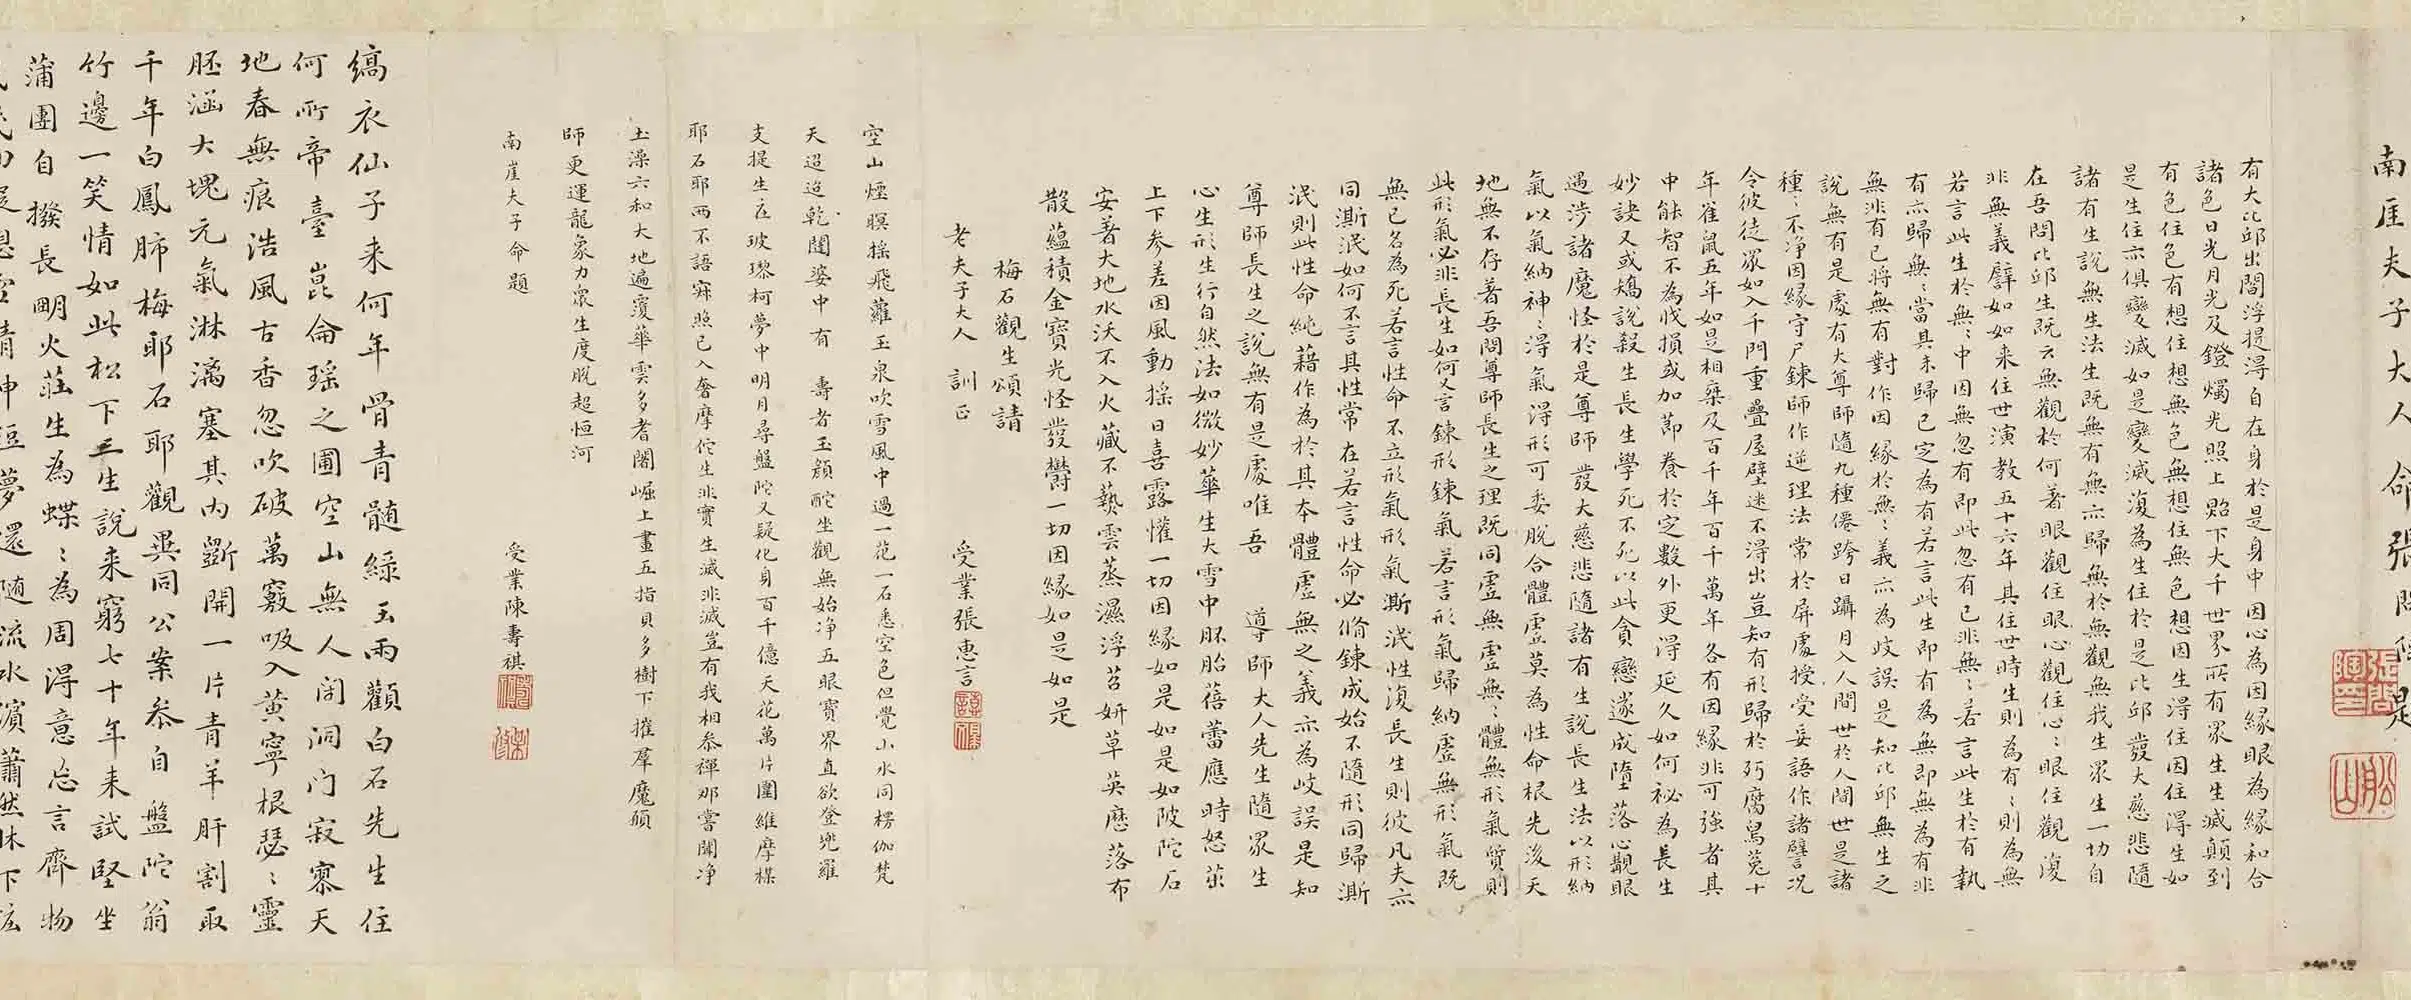 南厓夫子大人命張問陶是
張問陶印
船山
有大比邱出閻浮提得自在身於是身中因心為因緣眼為緣和合
諸色日光月光及鐙燭光照上貽下大千世界所有眾生生滅顛到
有色住色有想住想無色無想住無色想因生得住因住得生如
是生住亦俱變滅如是變滅復為生住於是比邱發大慈悲隨
諸有生說無生法生既無有無亦歸無於無觀無我生眾生一切自
在吾問比邱生既云無觀於何著眼觀住眼心觀住心〻眼住觀復
非無義譬如如來住世演教五十六年其住世時生則為有〻則為無
若言此生於無〻中因無忽有即此忽有已非無〻若言此生於有執
有亦歸無〻當其未歸已定為有若言此生即有為無即無為有非
無非有已將無有對作因緣於無〻義亦為歧誤是知比邱無生之
說無有是處有大尊師隨九種僊跨日躡月入人間世於人間世是諸
種〻不淨因緣守尸鍊師作逆理法常於屏處授受妄語作諸譬況
令彼徒眾如入千門重疊屋壁迷不得出豈知有形歸於朽腐舄菟十
年雀鼠五年如是相乘及百千年百千萬年各有因緣非可強者其
中能智不為伐損或加節養於定數外更得延久如何祕為長生
妙訣又或矯說殺生長生學死不死以此貪戀遂成墮落心翳眼
遇涉諸魔怪於是尊師發大慈悲隨諸有生說長生法以形納
氣以氣納神〻得氣得形可委脫合體虛莫為性命根先後天
地無不存著吾問尊師長生之理既同虛無虛無〻體無形氣質則
此形氣必非長生如何又言鍊形鍊氣若言形氣歸納虛無形氣既
無已名為死若言性命不立形氣形氣澌泯性復長生則彼凡夫亦
同澌泯如何不言其性常在若言性命必脩鍊成始不隨形同歸澌
泯則此性命純藉作為於其本體虛無之義亦為歧誤是知
尊師長生之說無有是處唯吾　導師大人先生隨眾生
心生形生行自然法如微妙華生大雪中胚胎蓓蕾應時怒茁
上下參差因風動搖日喜露懽一切因緣如是如是如陂陀石
安著大地水沃不入火藏不爇雲蒸濕浮苔妍草英應落布
散蘊積金寶光怪發欝一切因緣如是如是
梅石觀生頌請
老夫子大人　訓正　受業張惠言
空山煙暝搖飛蘿玉泉吹雪風中過一花一石悉空色但覺山水同楞伽梵
天迢迢乾闥婆中有　壽者玉顏酡坐觀無始淨五眼寶界直欲登兜羅
支提生衣玻瓈柯夢中明月尋盤陀又疑化身百千億天花萬片圍維摩楳
耶石耶兩不語寂照已入奢摩佗生非實生滅非滅豈有我相參禪那嘗聞淨
土澡六和大地遍覆華雲多耆闍崛上畫五指貝多樹下摧羣魔願
師更運龍象力眾生度脫超恒河
南崖夫子命題　受業陳壽祺
縞衣仙子来何年骨青髓綠玉兩顴白石先生住
何所帝臺崑侖瑶之圃空山無人閉洞门寂寥天
地春無痕浩風古香忽吹破萬竅吸入黄寧根瑟〻靈
胚涵大塊元氣淋漓塞其内斵開一片青羊肝割取
千年白鳳肺梅耶石耶觀異同公案參自盤陀翁
竹邊一笑情如此松下三生說来窮七十年来試堅坐
蒲團自撥長明火莊生為蝶〻為周得意忘言齊物